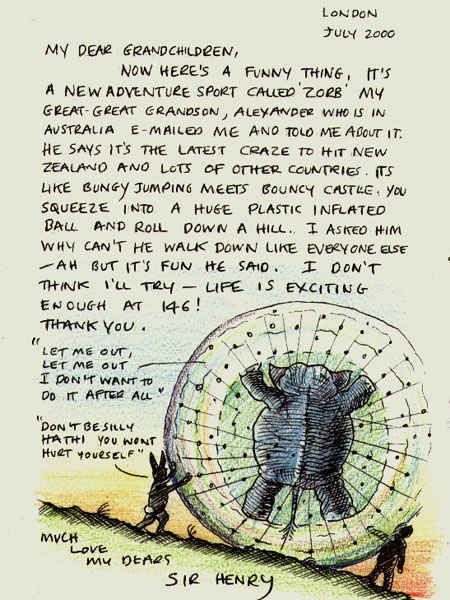 LONDON
JULY 2000
MY DEAR GRANDCHILDREN,
NOW HERE'S A FUNNY THING, IT'S
A NEW ADVENTURE SPORT CALLED 'ZORB' MY
GREAT-GREAT GRANDSON, ALEXANDER WHO IS IN
AUSTRALIA E-MAILED ME AND TOLD ME ABOUT IT.
HE SAYS IT'S THE LATEST CRAZE TO HIT NEW
ZEALAND AND LOTS OF OTHER COUNTRIES. ITS
LIKE BUNGY JUMPING MEETS BOUNCY CASTLE. YOU
SQUEEZE INTO A HUGE PLASTIC INFLATED
BALL AND ROLL DOWN A HILL. I ASKED HIM
WHY CAN'T HE WALK DOWN LIKE EVERYONE ELSE
—AH BUT IT'S FUN HE SAID. I DON'T
THINK I'LL TRY — LIFE IS EXCITING
ENOUGH AT 146!
THANK YOU.
"LET ME OUT,
LET ME OUT
I DON'T WANT TO
DO IT AFTER ALL"
"DON'T BE SILLY
HATHI YOU WONT
HURT YOURSELF"
MUCH
LOVE
MY DEARS
SIR HENRY